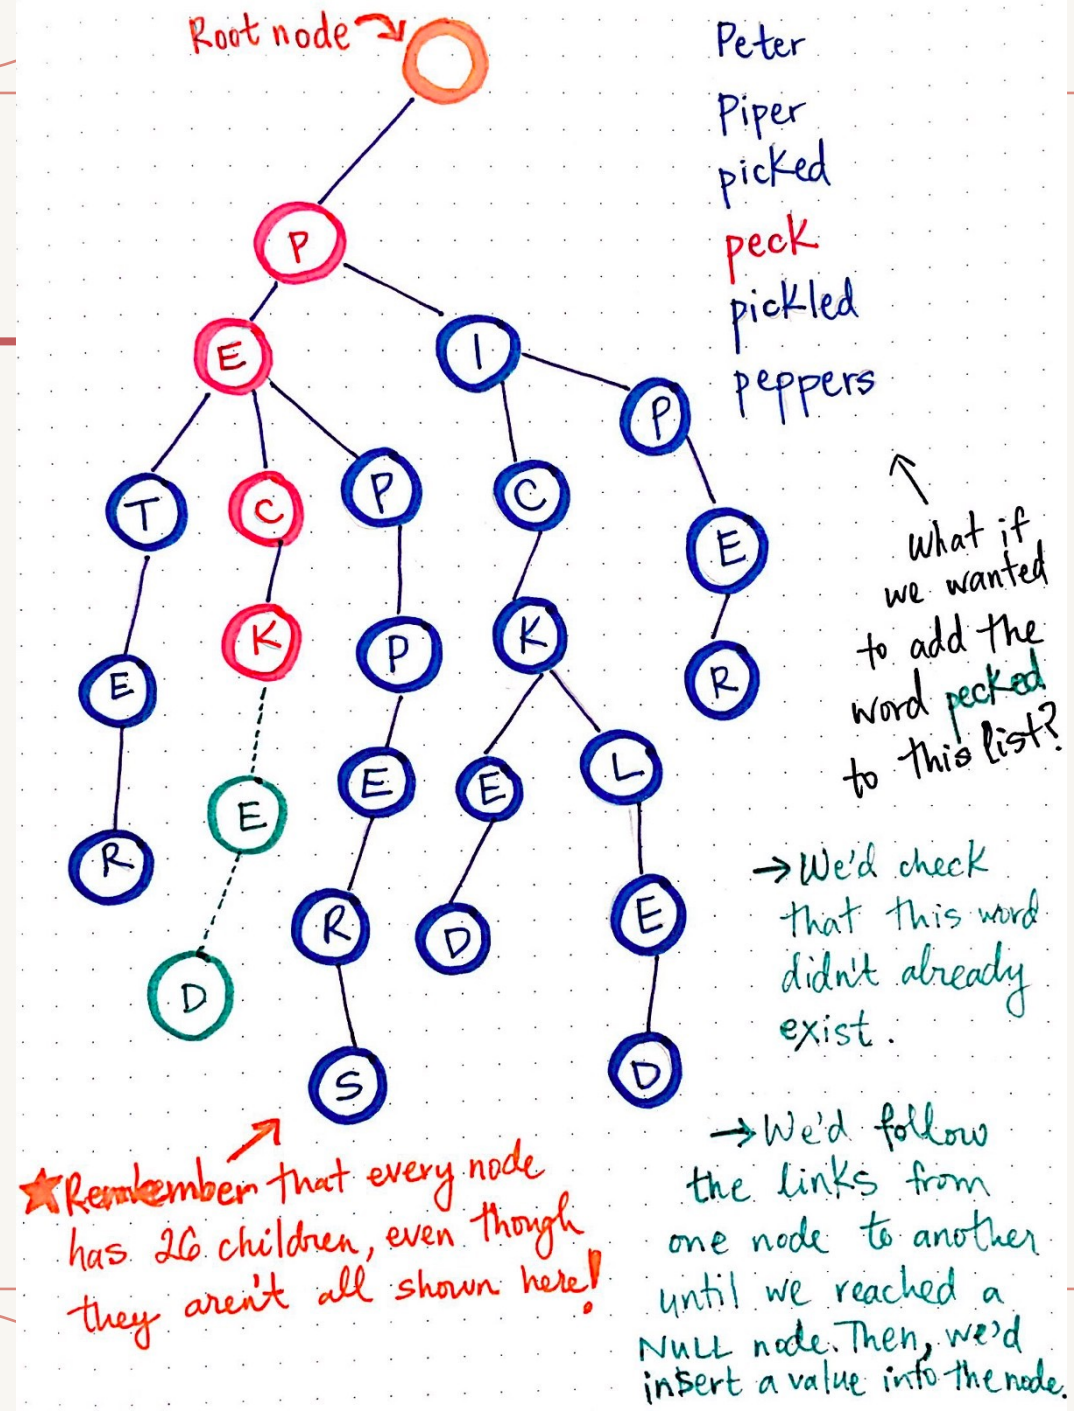 Root node
P
E
I
T
C
P
C
P
E
K
P
K
E
R
E
E
E
L
R
D
R
D
E
S
D
Peter
Piper
picked
peck
pickled
peppers
What if
we wanted
to add the
word pecked
to this list?
→ We'd check
that this word
didn't already
exist.
→ We'd follow
the links from
one node to another
until we reached a
NULL node. Then, we'd
insert a value into the node.
★ Remember that every node
has 26 children, even though
they aren't all shown here!